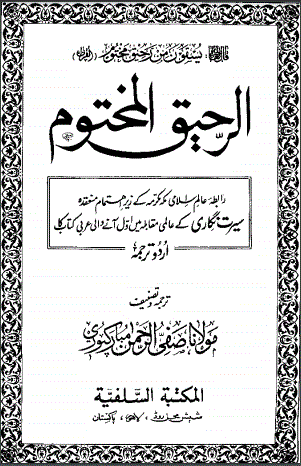 قال اللہ تعالیٰ: يُسْقَوْنَ مِنْ رَحِيقٍ مَخْتُومٍ (القرآن)
الرحیق المختوم
رابطہ عالم اسلامی مکہ مکرمہ کے زیر اہتمام منعقدہ
سیرت نگاری کے عالمی مقابلہ میں اوّل آنے والی عربی کتاب کا
اردو ترجمہ
ترجمہ و تصنیف
مولانا صفی الرحمن مبارکپوری
المكتبة السلفية
شیش محل روڈ، لاہور، پاکستان